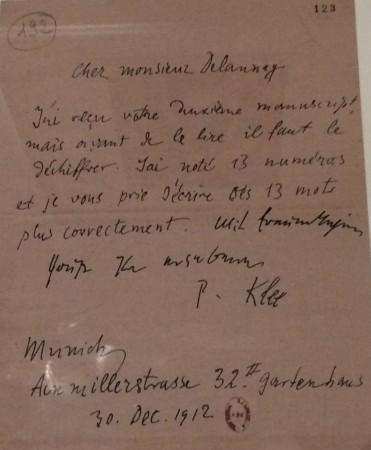 123
192
Cher monsieur Delaunay
J'ai reçu votre deuxième manuscript,
mais avant de le lire il faut le
déchiffrer. J'ai noté 13 numéros
et je vous prie d'écrire ces 13 mots
plus correctement. Mit
Ihr
P. Klee
Munich
Ainmillerstrasse 32.II gartenhaus
30. Dec. 1912